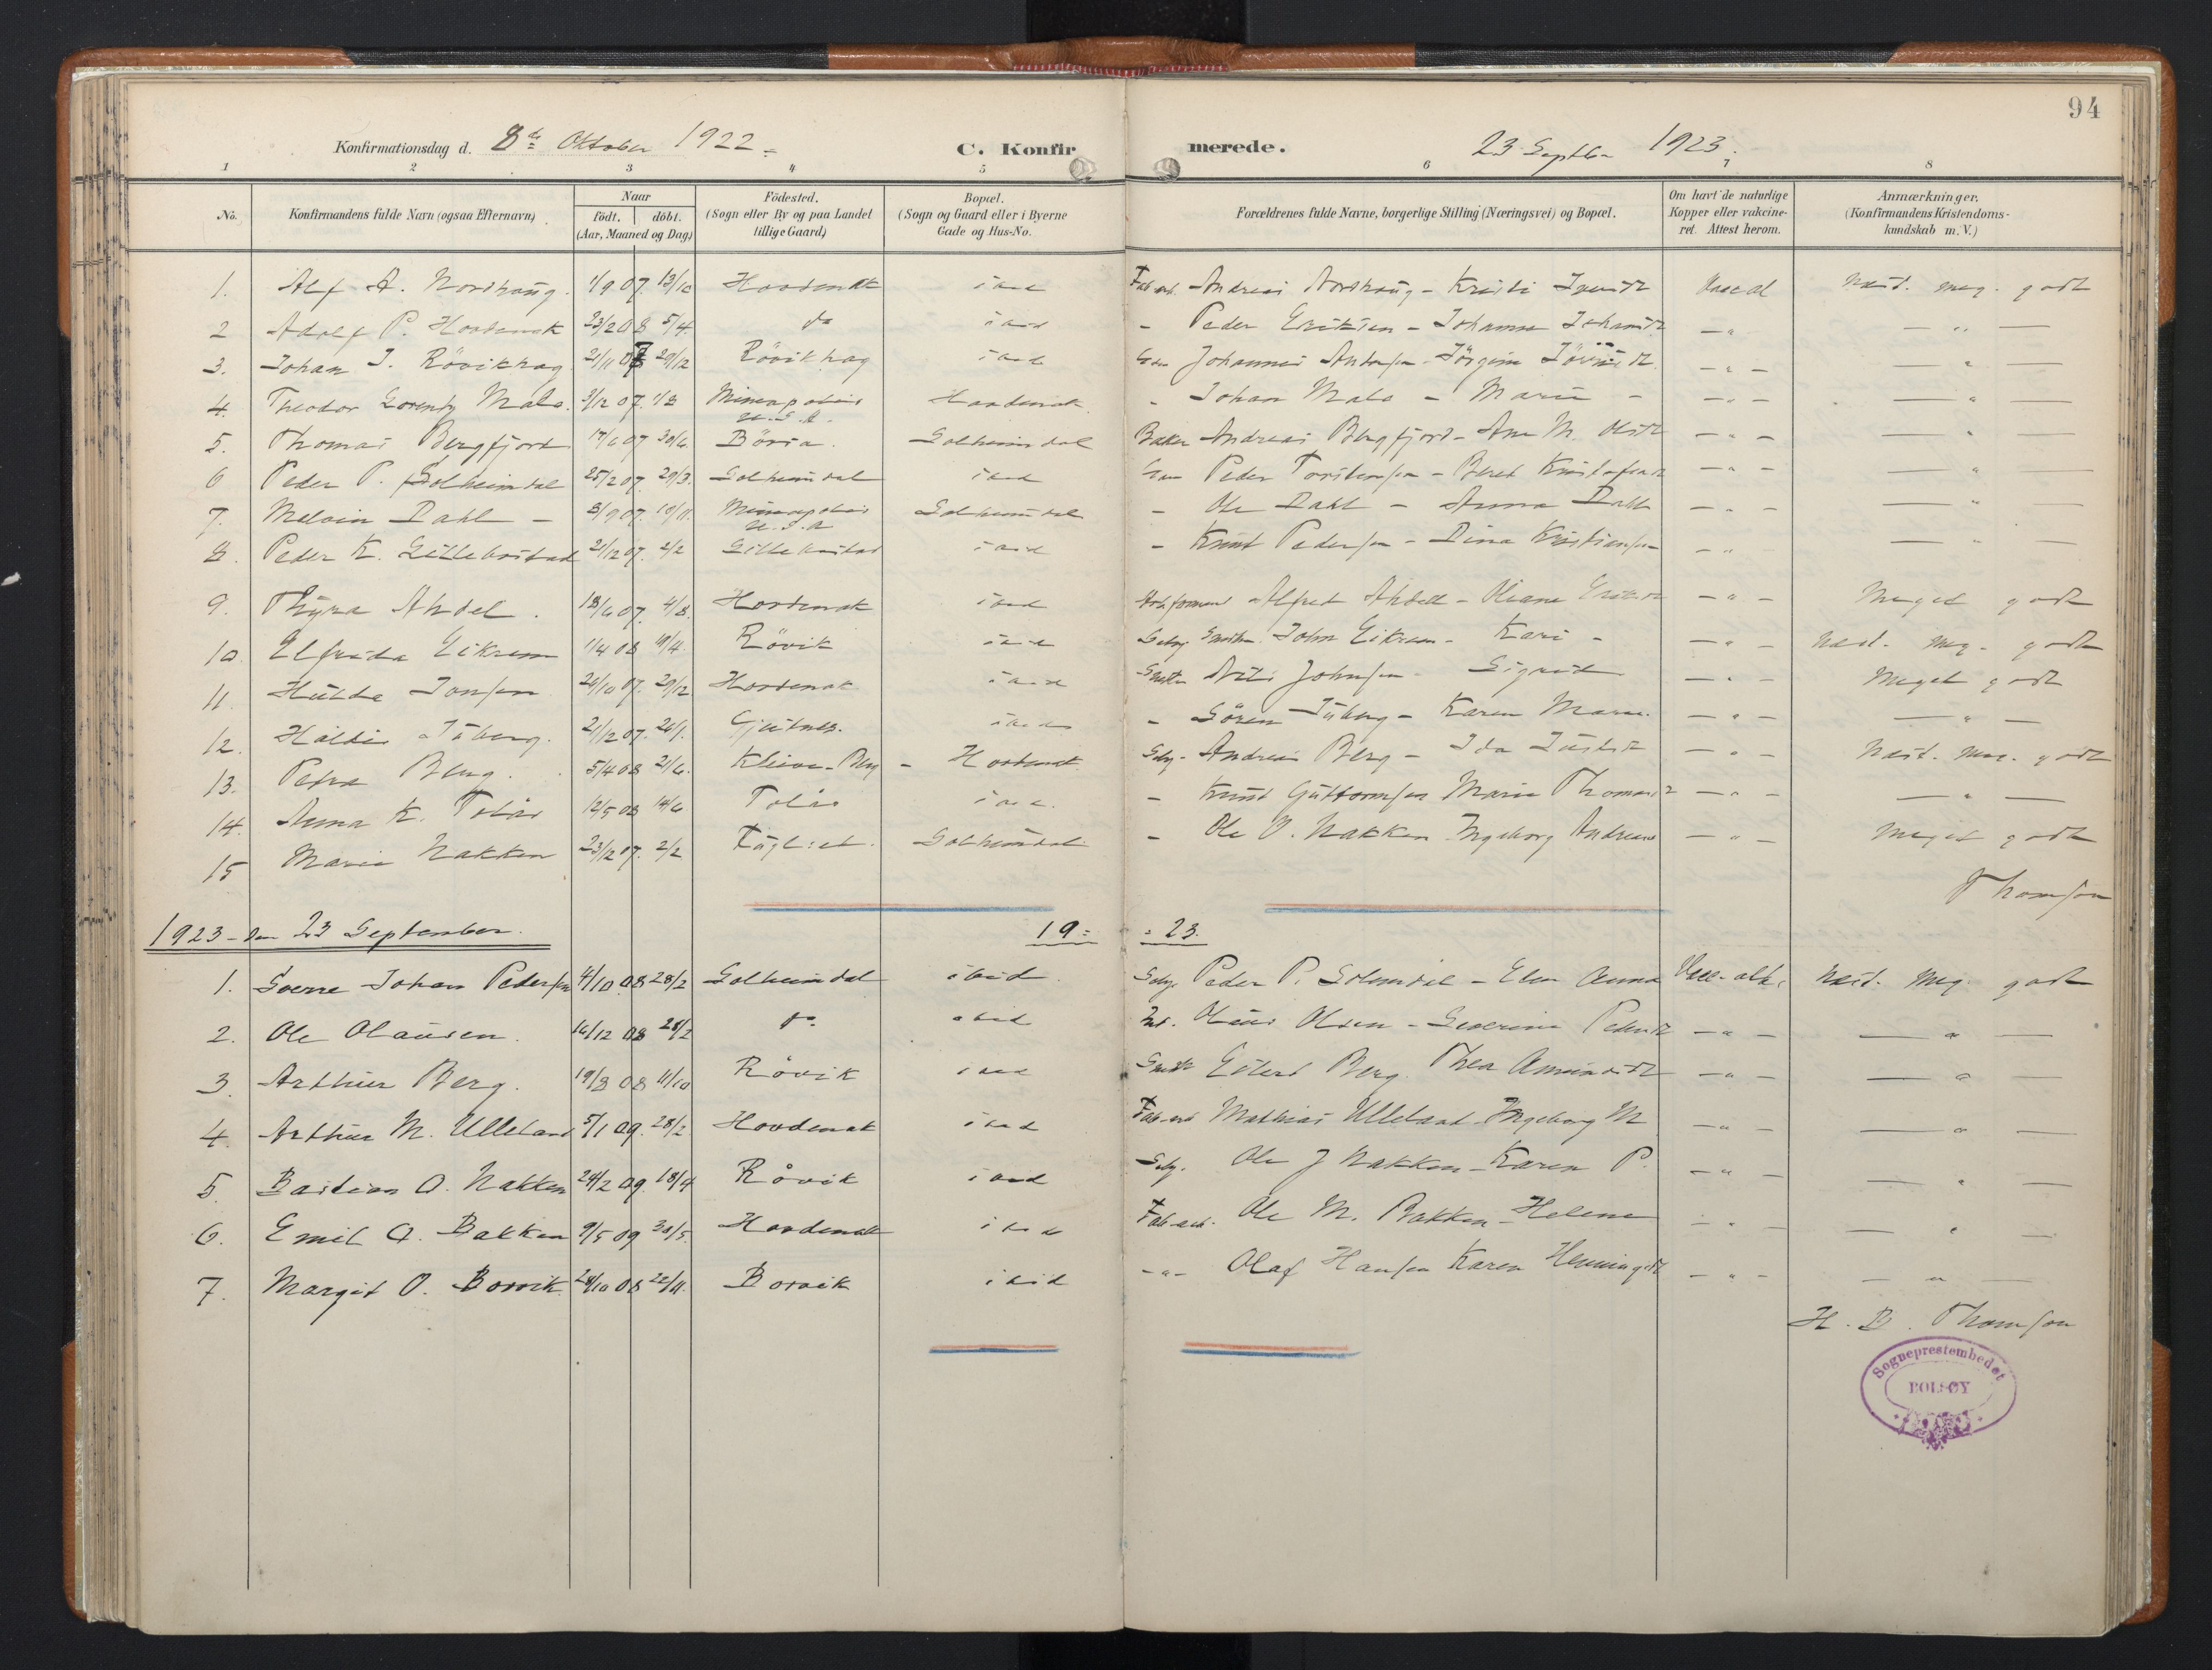 94
Konfirmationsdag d. 8de Oktober 1922. C. Konfirmerede. 23 Septbr 1923.
1 2 3 4 5 6 7 8
No. Konfirmandens fulde Navn (ogsaa Efternavn) Naar födt. döbt. (Aar, Maaned og Dag) Födested. (Sogn eller By og paa Landet tillige Gaard) Bopæl. (Sogn og Gaard eller i Byerne Gade og Hus-No. Forældrenes fulde Navne, borgerlige Stilling (Næringsvei) og Bopæl. Om havt de naturlige Kopper eller vakcineret. Attest herom. Anmærkninger. (Konfirmandens Kristendomskundskab m. V.)
1. Alf A. Nordhaug. 1/9 07 13/10 Hovdenak ibid Fab. arb. Andreas Nordhaug - Kristi Vacc al Næst. meg. godt
2 Adolf P. Hovdenak 23/2 08 5/4 do ibid - Peder Eriksen - Johanna Johansdt - " - - " -
3. Johan J. Rövikhag 21/11 07 29/12 Rövikhag ibid Johannes - Jörgine - " - - " -
4. Theodor Lorentz Malo. 3/12 07. 1/3 Mineapolis U.S.A. Hovdenak - Johan Malo - Marie - - " - - " -
5. Thomas Bergfjord 17/6 07 30/6 Bövra. Solheimdal Baker Andreas Bergfjord - Ane M. Olsdt - " - - " -
6 Peder P. Solheimdal 25/2 07. 29/3. Solheimdal ibid Peder Torstensen - Beret - " - - " -
7. Melvin Dahl - 3/9 07. 10/11. Mineapolis U.S.A Solheimdal - Ole Dahl - Anna Dahl - " - - " -
8. Peder K. Gillebostad 21/12 07. 2/2 Gillebostad ibid - Knut Pedersen - Dina Kristiansen - " - " -
9. Thyra Ahdel. 18/6 07. 4/8. Hovdenak ibid Alfred Ahdell - Oliane - " - Meget godt
10. Elfrida Eikrem 1/4 08 19/4. Rövik ibid John Eikrem - Kari - - " - Næst. meg. godt
11. Hulda Jonsen 24/10 07. 29/12 Hovdenak ibid Nils Johnsen - Sigrid - " - Meget godt
12. Haldis Tüberg. 21/12 07. 26/1. Gjutnes. ibid - Sören Tüberg - Karen Marie. - " - - " -
13. Petra Berg. 5/4 08 21/6. Kleive-Berg - Hovdenak Selvej. Andreas Berg - Ida - " - Næst. meg. godt
14. Anna K. Tolås 12/5 08 14/6 Tolås ibid. - Knut Guttormsen Marie Thomasdt - " - - " -
15 Marie Nakken 23/12 07. 2/2 Fuglset. Solheimdal - Ole O. Nakken Ingeborg Andreasd - " - Meget godt
Thomson
1923 - den 23 September. 19 = = 23.
1. Sverre Johan Pedersen 4/10 08 28/2 Solheimdal ibid Selvej. Peder P. Solemdal - Elen Anna Vacc. att. Næst. Meg. godt
2. Ole Olausen. 16/12 08 28/2 do. ibid Olaus Olsen - Severine Pedersdt - " - - " -
3. Arthur Berg. 19/8 08 11/10 Rövik ibid Eilert Berg. Thea Amundsdt - " - - " -
4. Arthur M. Ulleland 5/1 09. 28/2 Hovdenak ibid Fab. arb Mathias Ulleland. Ingeborg M - " - - " -
5. Bastian O. Nakken 24/2 09. 18/4 Rövik ibid Selvej. Ole J Nakken - Karen P. - " - - " -
6. Emil O. Bakken 9/5 09 30/5. Hovdenak ibid Fab. arb. Ole M. Bakken - Helene - " - - " -
7. Margit O. Borvik. 28/10 08 22/11. Borvik ibid - " - Olaf Hansen Karen Henningsdt - " - - " -
H. B. Thomson
Sogneprestembedet
BOLSØY